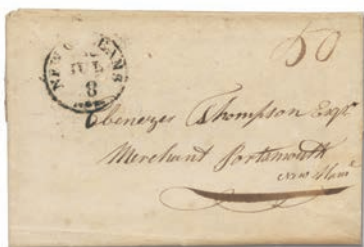 50
NEW ORLEANS
JUL
8
Ebenezer Thompson Esqr
Merchant Portsmouth
New Hamr